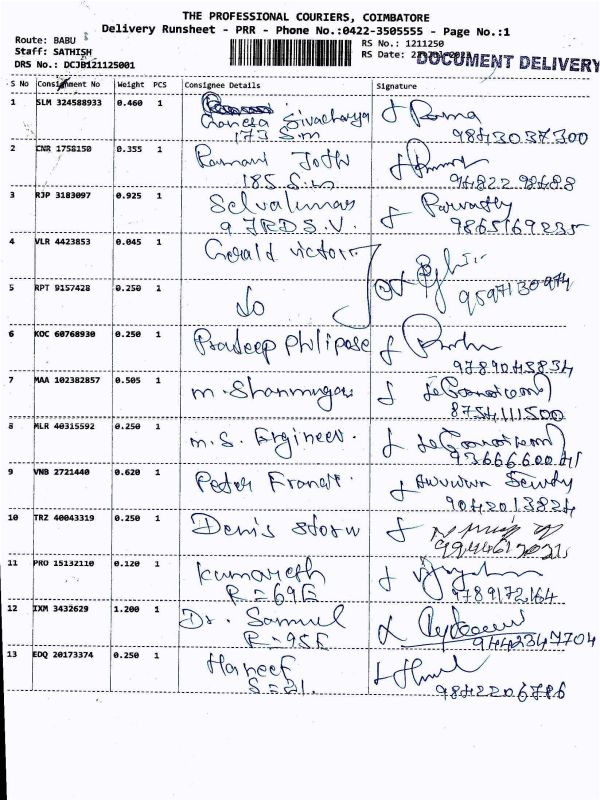 THE PROFESSIONAL COURIERS, COIMBATORE
Delivery Runsheet - PRR - Phone No.:0422-3505555 - Page No.:1
Route: BABU
Staff: SATHISH
DRS No.: DCJB121125001
RS No.: 1211250
RS Date: 22
DOCUMENT DELIVERY
S No Consignment No Weight PCS Consignee Details Signature
1 SLM 324588933 0.460 1 Ganesa Sivacharya Rama
173 S.m 9843037300
2 CNR 1758150 0.355 1
185 S.m 94822 92688
3 RJP 3183097 0.925 1 Selvakumar Parvathy
9 JRD S.V. 9865169235
4 VLR 4423853 0.045 1 Gerald victor
5 RPT 9157428 0.250 1 do 9597130974
6 KOC 60768930 0.250 1 Pradeep Philipose
9789045834
7 MAA 102382857 0.505 1 m. Shanmugam
8754111500
8 MLR 40315592 0.250 1 m.s. Ergineer.
9 VNB 2721440 0.620 1 Peter
9042013824
10 TRZ 40043319 0.250 1 Denis
11 PRO 15132110 0.120 1 Kumaresh
R = 69E 9789172164
12 IXM 3432629 1.200 1 Dr. Samuel
R = 95E 9442347704
13 EDQ 20173374 0.250 1 Haneef
S = 21. 9842206786